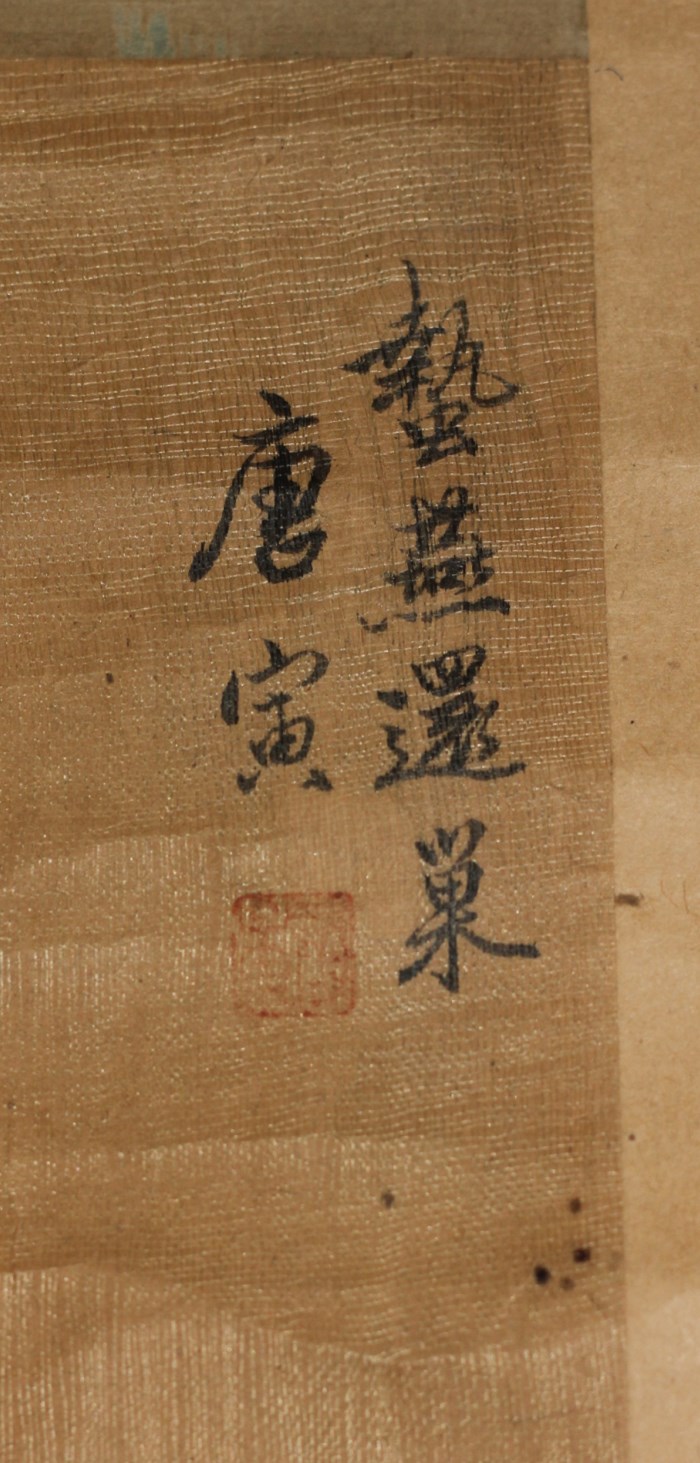 蟄燕還巢
唐寅